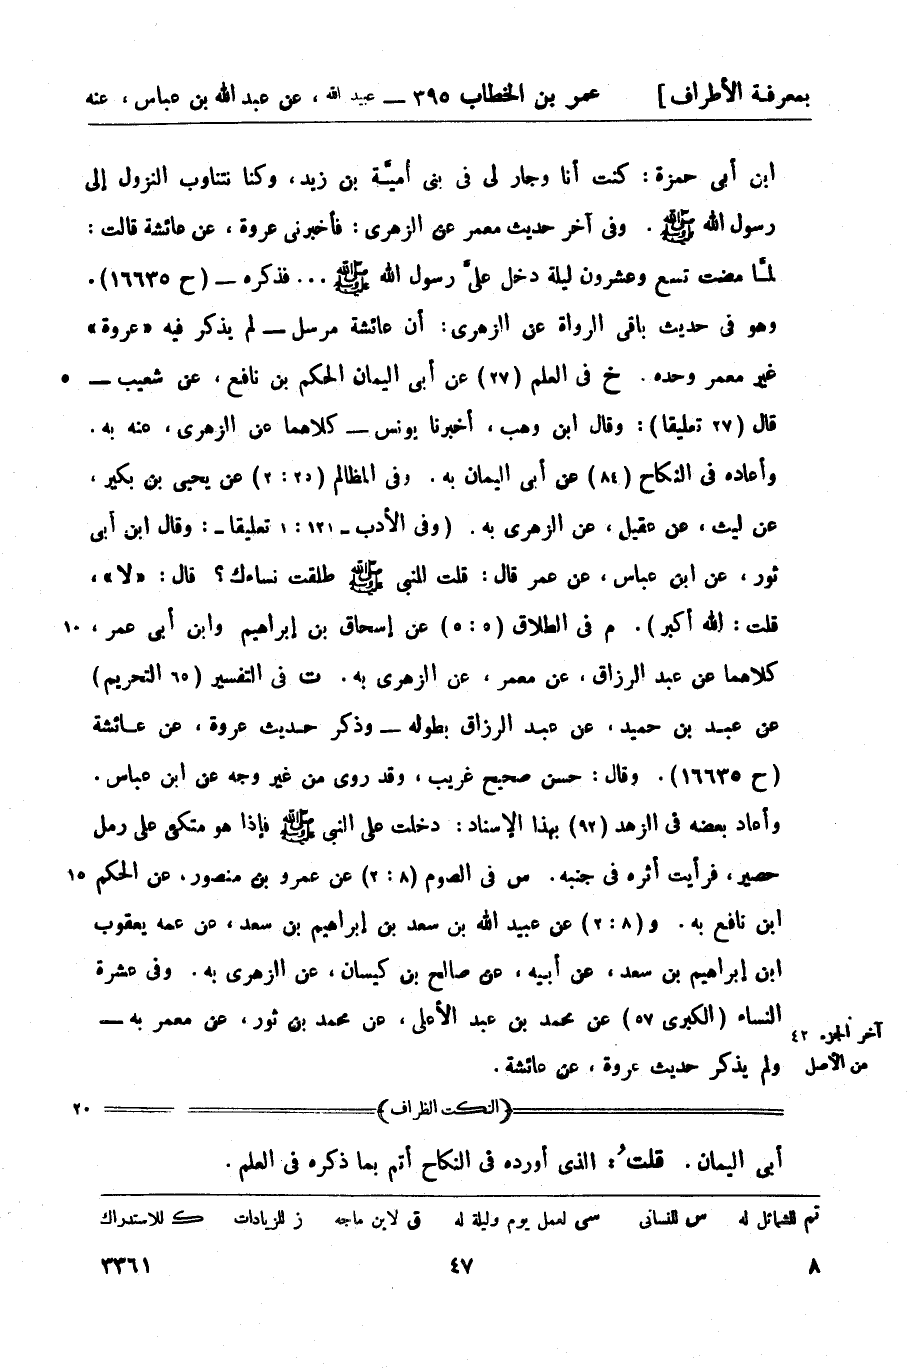 بمعرفة الأطراف] عمر بن الخطاب ٣٩٥ — عبيد الله ، عن عبد الله بن عباس ، عنه
ابن أبى حمزة : كنت أنا وجار لى فى بنى أميَّة بن زيد، وكنا نتناوب النزول إلى
رسول الله ﷺ . وفى آخر حديث معمر عن الزهرى : فأخبرنى عروة ، عن عائشة قالت :
لمَّا مضت تسع وعشرون ليلة دخل علىَّ رسول الله ﷺ ... فذكره — (ح ١٦٦٣٥).
وهو فى حديث باقى الرواة عن الزهرى : أن عائشة مرسل — لم يذكر فيه «عروة»
غير معمر وحده . خ فى العلم (٢٧) عن أبى اليمان الحكم بن نافع ، عن شعيب — ٥
قال (٢٧ تعليقا) : وقال ابن وهب ، أخبرنا يونس — كلاهما عن الزهرى ، عنه به .
وأعاده فى النكاح (٨٤) عن أبى اليمان به . وفى المظالم (٢٥ : ٢) عن يحيى بن بكير ،
عن ليث ، عن عقيل ، عن الزهرى به . (وفى الأدب ـ ١٢١ : ١ تعليقا ـ : وقال ابن أبى
ثور ، عن ابن عباس ، عن عمر قال : قلت للنبى ﷺ طلقت نساءك ؟ قال : «لا» ،
قلت : الله أكبر) . م فى الطلاق (٥ : ٥) عن إسحاق بن إبراهيم وابن أبى عمر ، ١٠
كلاهما عن عبد الرزاق ، عن معمر ، عن الزهرى به . ت فى التفسير (٦٥ التحريم)
عن عبد بن حميد ، عن عبد الرزاق بطوله — وذكر حديث عروة ، عن عائشة
(ح ١٦٦٣٥) . وقال : حسن صحيح غريب ، وقد روى من غير وجه عن ابن عباس .
وأعاد بعضه فى الزهد (٩٢) بهذا الإسناد : دخلت على النبى ﷺ فإذا هو متكئ على رمل
حصير ، فرأيت أثره فى جنبه . س فى الصوم (٨ : ٢) عن عمرو بن منصور ، عن الحكم ١٥
ابن نافع به . و(٨ : ٢) عن عبيد الله بن سعد بن إبراهيم بن سعد ، عن عمه يعقوب
ابن إبراهيم بن سعد ، عن أبيه ، عن صالح بن كيسان ، عن الزهرى به . وفى عشرة
النساء (الكبرى ٥٧) عن محمد بن عبد الأعلى ، عن محمد بن ثور ، عن معمر به —
آخر الجزء ٤٢
من الأصل
ولم يذكر حديث عروة ، عن عائشة .
(النكت الظراف) ٢٠
أبى اليمان . قلتُ : الذى أورده فى النكاح أتم بما ذكره فى العلم .
تم للشمائل له س للنسائى سى لعمل يوم وليلة له ق لابن ماجه ز للزيادات ك للاستدراك
٨ ٤٧ ٣٣٦١